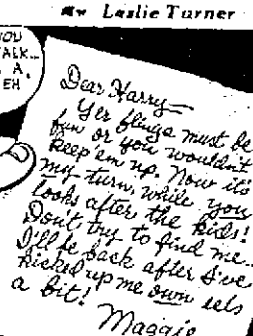 By Leslie Turner
YOU
TALK...
A,
EH
Dear Harry—
Yer flings must be
fun or you wouldn't
keep 'em up. Now it's
my turn, while you
looks after the kids!
Don't try to find me...
I'll be back after I've
kicked up me own eels
a bit!
Maggie